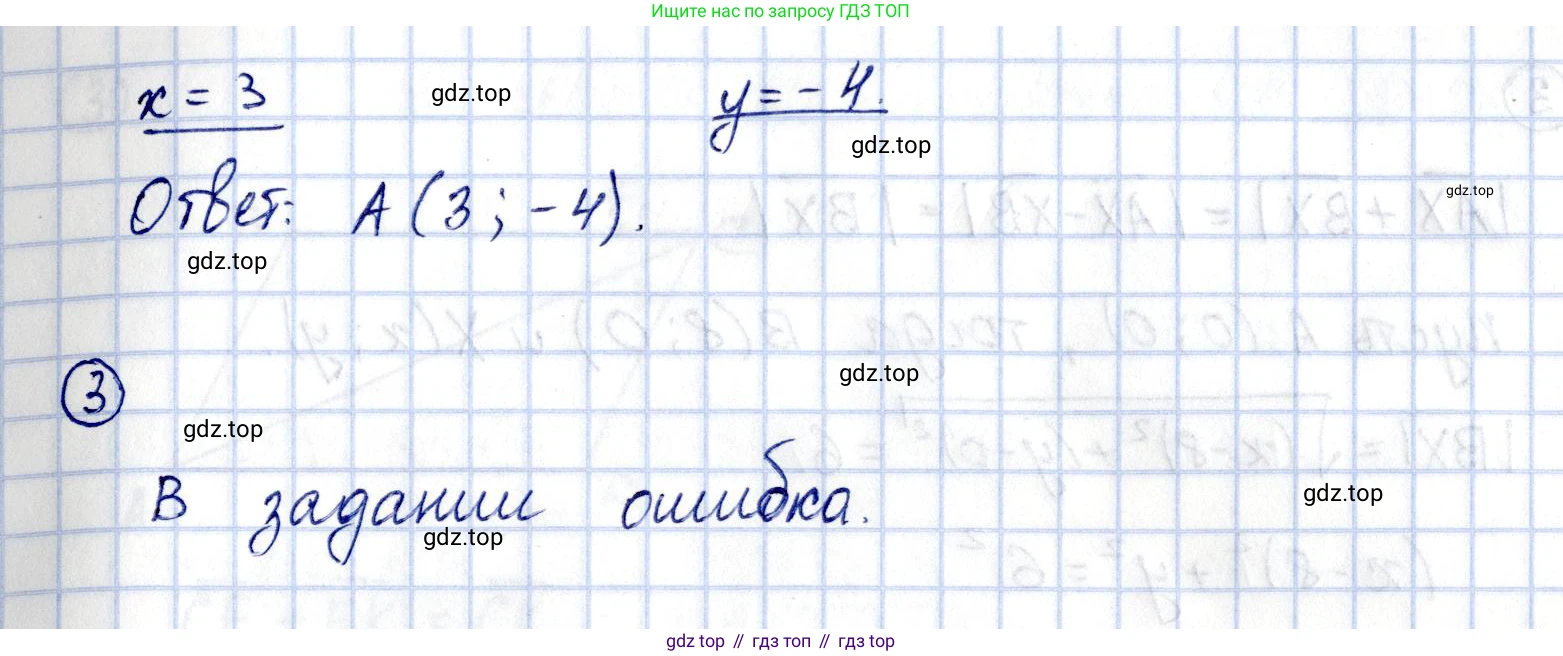 Ищите нас по запросу ГДЗ ТОП
x = 3 gdz.top y = - 4.
gdz.top
Ответ: A (3 ; - 4).
gdz.top
gdz.top
gdz.top
3
gdz.top
В задании ошибка.
gdz.top
gdz.top
gdz top // гдз топ // гдз top